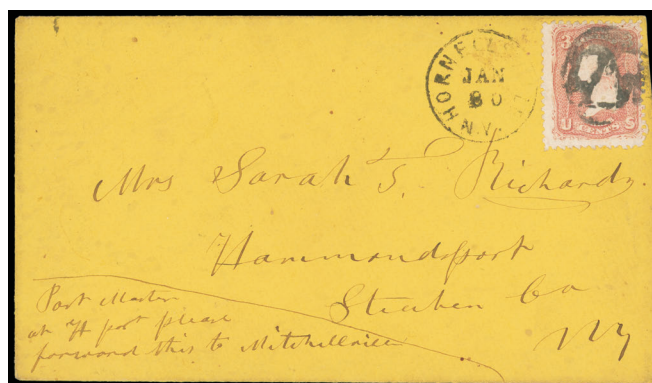 JAN
30
N.Y.
3
U CENTS S
Mrs Sarah T. Richards.
Hammondsport
Steuben Co
NY
Post Master
at H port please
forward this to Mitchellville